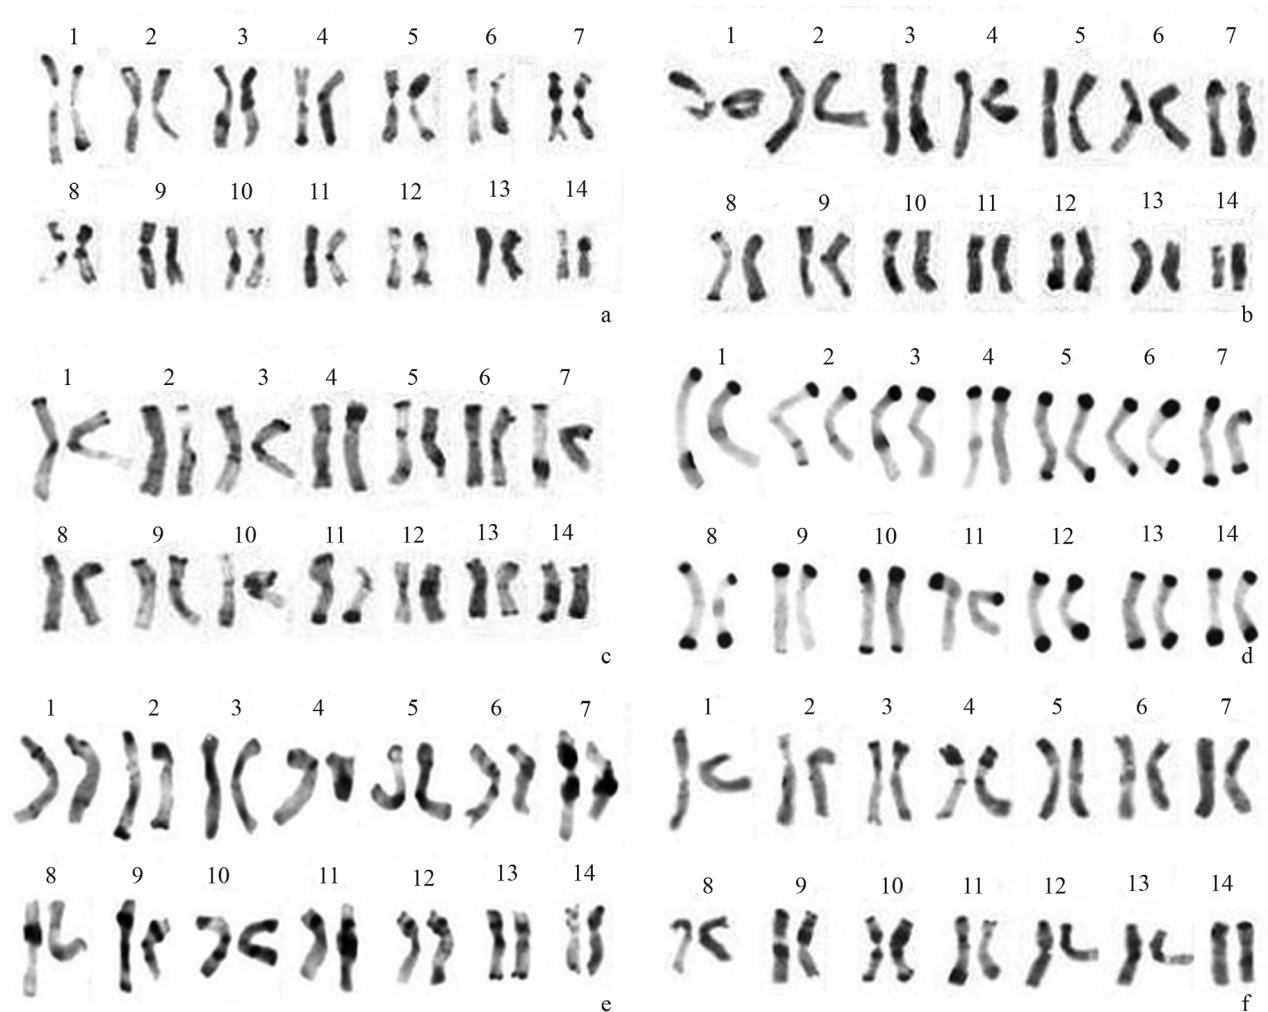 1 2 3 4 5 6 7
8 9 10 11 12 13 14
a
1 2 3 4 5 6 7
8 9 10 11 12 13 14
b
1 2 3 4 5 6 7
8 9 10 11 12 13 14
c
1 2 3 4 5 6 7
8 9 10 11 12 13 14
d
1 2 3 4 5 6 7
8 9 10 11 12 13 14
e
1 2 3 4 5 6 7
8 9 10 11 12 13 14
f